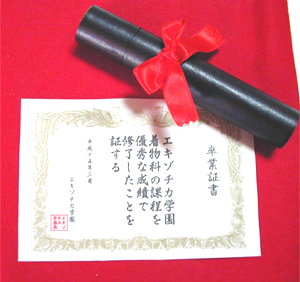 卒業証書
エキゾチカ学園
着物科の課程を
優秀な成績で
修了したことを
証する
平成十五年三月
エキゾチカ学園